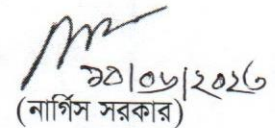 ১০/০৮/২০২৩
(নার্গিস সরকার)